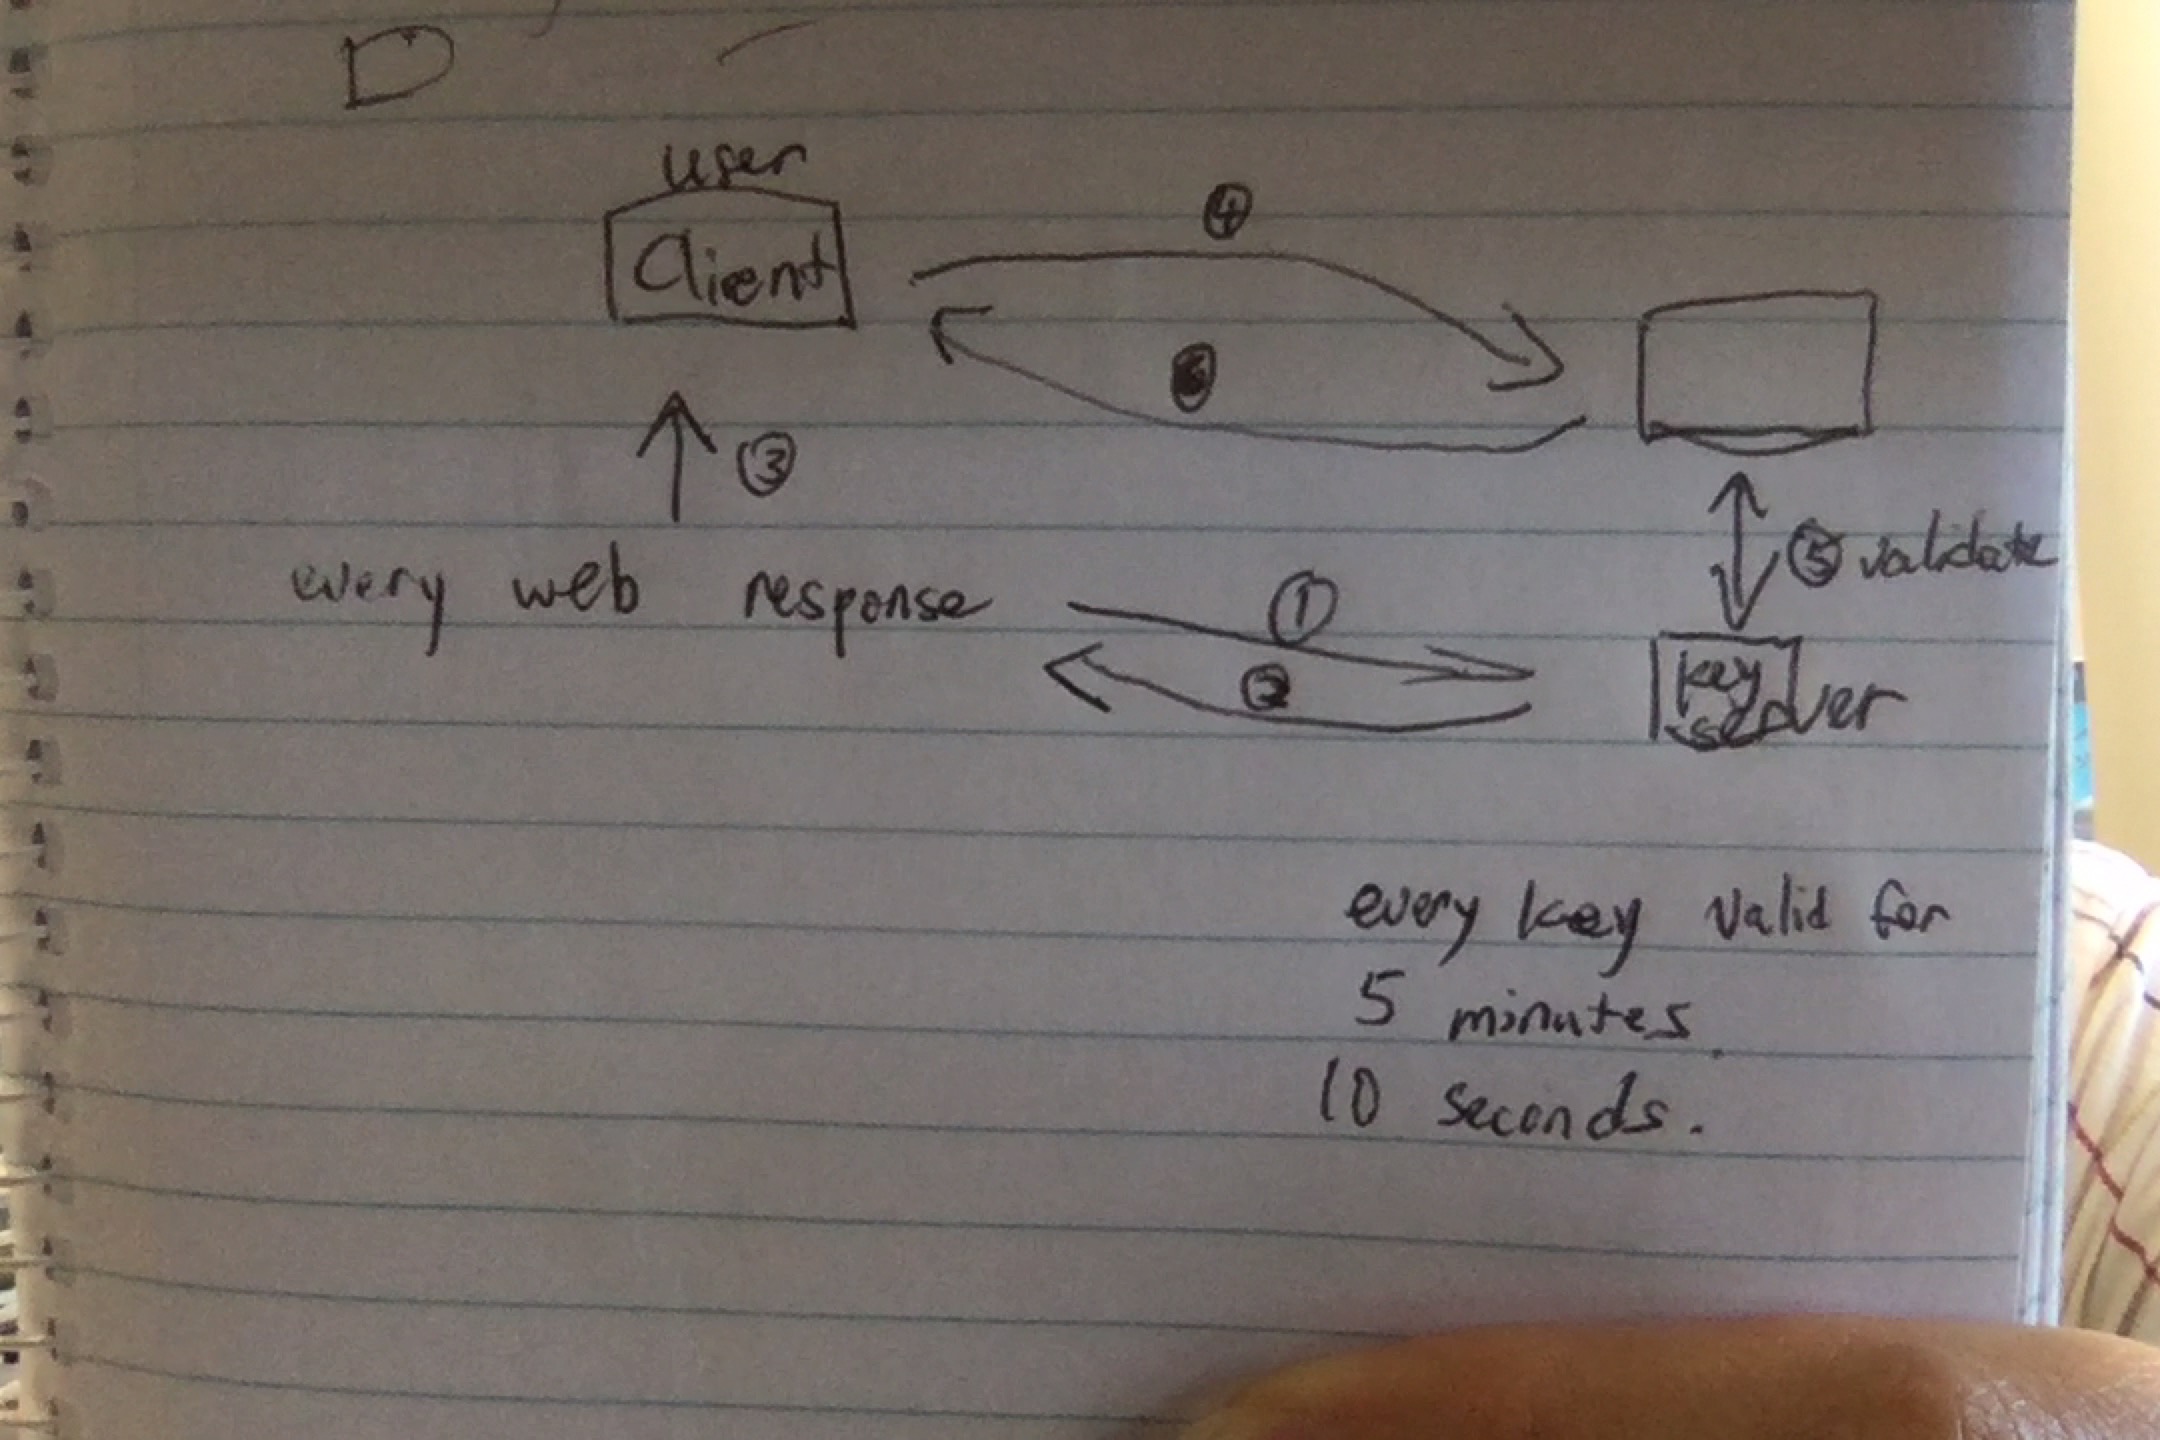 D
user
Client
④
③
every web response
①
②
⑤ validate
key
server
every key valid for
5 minutes
10 seconds.